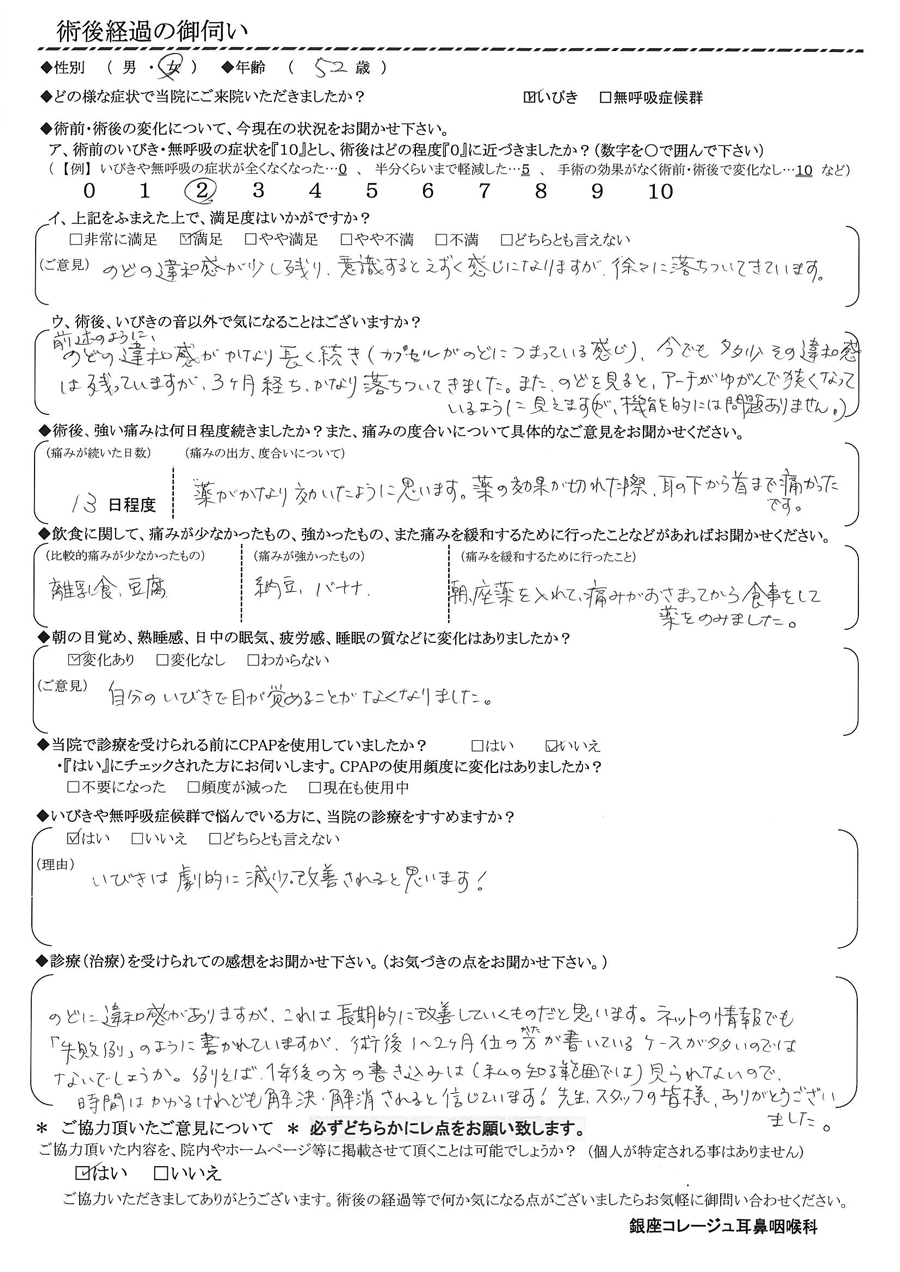 術後経過の御伺い
◆性別 （ 男 ・ 女 ） ◆年齢 （ 52 歳 ）
◆どの様な症状で当院にご来院いただきましたか？ ☑いびき □無呼吸症候群
◆術前・術後の変化について、今現在の状況をお聞かせ下さい。
ア、術前のいびき・無呼吸の症状を『10』とし、術後はどの程度『0』に近づきましたか？（数字を〇で囲んで下さい）
（【例】 いびきや無呼吸の症状が全くなくなった…0 、 半分くらいまで軽減した…5 、 手術の効果がなく術前・術後で変化なし…10 など）
0 1 2 3 4 5 6 7 8 9 10
イ、上記をふまえた上で、満足度はいかがですか？
□非常に満足 ☑満足 □やや満足 □やや不満 □不満 □どちらとも言えない
（ご意見） のどの違和感が少し残り、意識するとえずく感じになりますが、徐々に落ちついてきています。
ウ、術後、いびきの音以外で気になることはございますか？
前述のように、
のどの違和感がかなり長く続き（カプセルがのどにつまっている感じ）、今でも多少その違和感
は残っていますが、3ヶ月経ち、かなり落ちついてきました。また、のどを見ると、アーチがゆがんで狭くなって
いるように見えますが、機能的には問題ありません。）
◆術後、強い痛みは何日程度続きましたか？また、痛みの度合いについて具体的なご意見をお聞かせください。
（痛みが続いた日数） （痛みの出方、度合いについて）
13 日程度 薬がかなり効いたように思います。薬の効果が切れた際、耳の下から首まで痛かった
です。
◆飲食に関して、痛みが少なかったもの、強かったもの、また痛みを緩和するために行ったことなどがあればお聞かせください。
（比較的痛みが少なかったもの） （痛みが強かったもの） （痛みを緩和するために行ったこと）
離乳食、豆腐 納豆、バナナ 朝、座薬を入れて、痛みがおさまってから食事をして
薬をのみました。
◆朝の目覚め、熟睡感、日中の眠気、疲労感、睡眠の質などに変化はありましたか？
☑変化あり □変化なし □わからない
（ご意見） 自分のいびきで目が覚めることがなくなりました。
◆当院で診療を受けられる前にCPAPを使用していましたか？ □はい ☑いいえ
・『はい』にチェックされた方にお伺いします。CPAPの使用頻度に変化はありましたか？
□不要になった □頻度が減った □現在も使用中
◆いびきや無呼吸症候群で悩んでいる方に、当院の診療をすすめますか？
☑はい □いいえ □どちらとも言えない
（理由）
いびきは劇的に減少。改善されると思います！
◆診療（治療）を受けられての感想をお聞かせ下さい。（お気づきの点をお聞かせ下さい。）
のどに違和感がありますが、これは長期的に改善していくものだと思います。ネットの情報でも
「失敗例」のように書かれていますが、術後1〜2ヶ月位の方（かた）が書いているケースが多いのでは
ないでしょうか。例えば、1年後の方の書き込みは（私の知る範囲では）見られないので、
時間はかかるけれども解決・解消されると信じています！先生、スタッフの皆様、ありがとうござい
ました。
＊ ご協力頂いたご意見について ＊ 必ずどちらかにレ点をお願い致します。
ご協力頂いた内容を、院内やホームページ等に掲載させて頂くことは可能でしょうか？ （個人が特定される事はありません）
☑はい □いいえ
ご協力いただきましてありがとうございます。術後の経過等で何か気になる点がございましたらお気軽に御問い合わせください。
銀座コレージュ耳鼻咽喉科